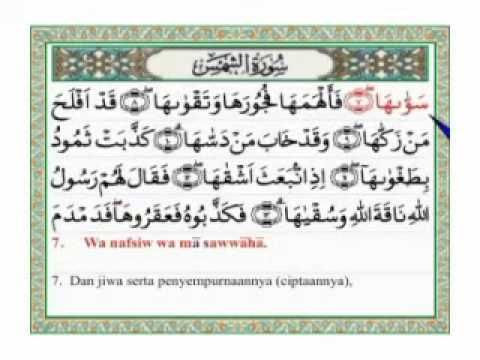 سُورَةُ الشَّمْسِ
سَوّٰىهَا ۝٧ فَاَلْهَمَهَا فُجُوْرَهَا وَتَقْوٰىهَا ۝٨ قَدْ اَفْلَحَ
مَنْ زَكّٰىهَا ۝٩ وَقَدْ خَابَ مَنْ دَسّٰىهَا ۝١٠ كَذَّبَتْ ثَمُوْدُ
بِطَغْوٰىهَا ۝١١ اِذِ انْۢبَعَثَ اَشْقٰىهَا ۝١٢ فَقَالَ لَهُمْ رَسُوْلُ
اللّٰهِ نَاقَةَ اللّٰهِ وَسُقْيٰهَا ۝١٣ فَكَذَّبُوْهُ فَعَقَرُوْهَا فَدَمْدَمَ
7. Wa nafsiw wa mā sawwāhā.
7. Dan jiwa serta penyempurnaannya (ciptaannya),